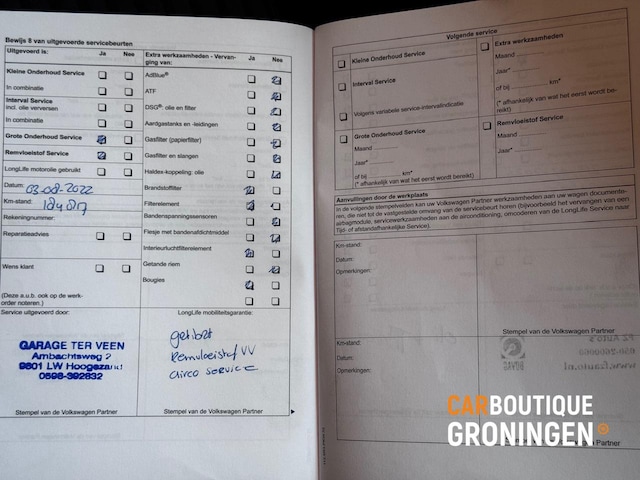 Bewijs 8 van uitgevoerde servicebeurten
Uitgevoerd is: Ja Nee
Kleine Onderhoud Service
In combinatie
Interval Service
incl. olie verversen
In combinatie
Grote Onderhoud Service
Remvloeistof Service
LongLife motorolie gebruikt
Datum: 03-08-2022
Km-stand:
Rekeningnummer:
Reparatieadvies
Wens klant
(Deze a.u.b. ook op de werk-
order noteren.)
Service uitgevoerd door:
GARAGE TER VEEN
Ambachtsweg 2
9601 LW Hoogezand
0598-392832
Stempel van de Volkswagen Partner
Extra werkzaamheden - Vervan-
ging van: Ja Nee
AdBlue®
ATF
DSG®: olie en filter
Aardgastanks en -leidingen
Gasfilter (papierfilter)
Gasfilter en slangen
Haldex-koppeling: olie
Brandstoffilter
Filterelement
Bandenspanningssensoren
Flesje met bandenafdichtmiddel
Interieurluchtfilterelement
Getande riem
Bougies
LongLife mobiliteitsgarantie:
Remvloeistof VV
airco service
Stempel van de Volkswagen Partner
Volgende service
Kleine Onderhoud Service
Interval Service
Volgens variabele service-intervalindicatie
Grote Onderhoud Service
Maand
Jaar*
of bij km*
(* afhankelijk van wat het eerst wordt bereikt)
Extra werkzaamheden
Maand
Jaar*
of bij km*
(* afhankelijk van wat het eerst wordt be-
reikt)
Remvloeistof Service
Maand
Jaar
Aanvullingen door de werkplaats
In de volgende stempelvelden kan uw Volkswagen Partner werkzaamheden aan uw wagen documente-
ren, die niet tot de vastgestelde omvang van de servicebeurt horen (bijvoorbeeld het vervangen van een
airbagmodule, servicewerkzaamheden aan de airconditioning, omcoderen van de LongLife Service naar
Tijd- of afstandafhankelijke Service).
Km-stand:
Datum:
Opmerkingen:
Stempel van de Volkswagen Partner
Km-stand:
Datum:
Opmerkingen:
CARBOUTIQUE
GRONINGEN